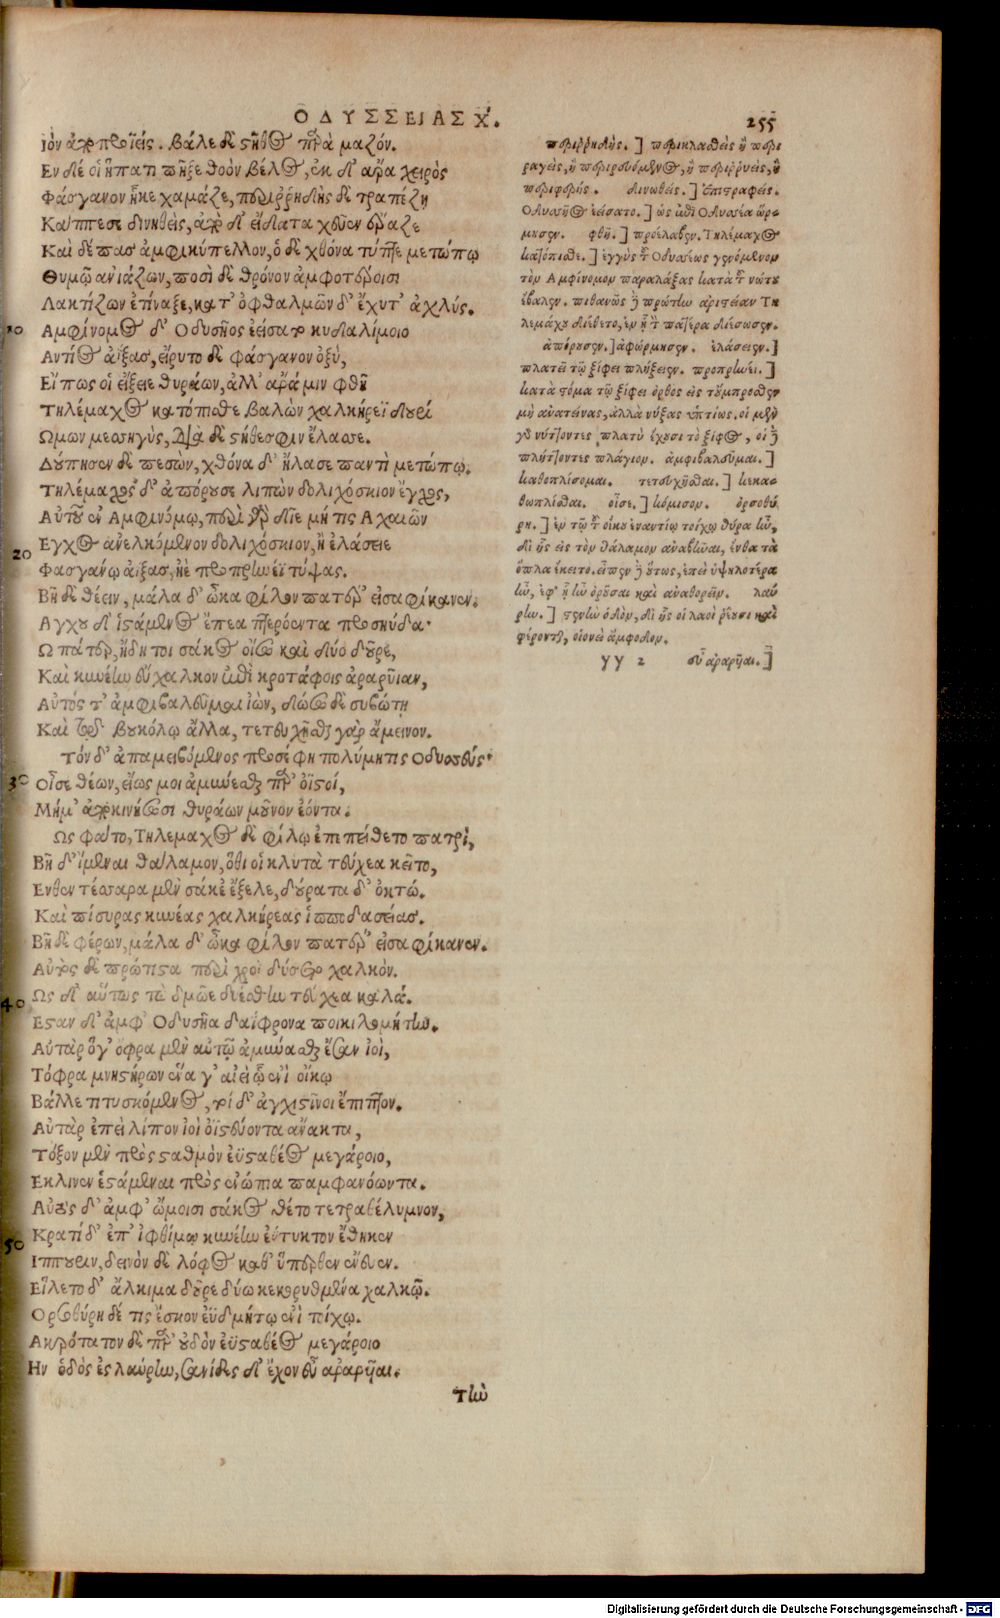 ΟΔΥΣΣΕΙΑΣ Χ. 255
Ιὸν ἀποπροϊείς. βάλε δὲ στῆθος παρὰ μαζόν.
Εν δέ οἱ ἥπατι πῆξε θοὸν βέλος, ἐκ δ' ἄρα χειρὸς
Φάσγανον ἧκε χαμάζε, περιῤῥηδὴς δὲ τραπέζῃ
Κάππεσε δινηθεὶς, ἀπὸ δ' εἴδατα χεῦεν ἔραζε
Καὶ δέπας ἀμφικύπελλον, ὁ δὲ χθόνα τύπτε μετώπῳ
Θυμῷ ἀνιάζων, ποσὶ δὲ θρόνον ἀμφοτέροισι
Λακτίζων ἐτίναξε, κατ' ὀφθαλμῶν δ' ἔχυτ' ἀχλύς.
10 Αμφίνομος δ' Οδυσῆος ἐείσατο κυδαλίμοιο
Αντίος ἀΐξας, εἴρυτο δὲ φάσγανον ὀξύ,
Εἴ πως οἱ εἴξειε θυράων, ἀλλ' ἄρά μιν φθῆ
Τηλέμαχος κατόπισθε βαλὼν χαλκήρεϊ δουρὶ
Ωμων μεσσηγὺς, διὰ δὲ στήθεσφιν ἔλασσε.
Δούπησεν δὲ πεσὼν, χθόνα δ' ἤλασε παντὶ μετώπῳ.
Τηλέμαχος δ' ἀπόρουσε λιπὼν δολιχόσκιον ἔγχος,
Αὐτοῦ ἐν Αμφινόμῳ, περὶ γὰρ δίε μή τις Αχαιῶν
20 Εγχος ἀνελκόμενον δολιχόσκιον, ἢ ἐλάσειε
Φασγάνῳ ἀΐξας, ἠὲ προπρηνέϊ τύψας.
Βῆ δὲ θέειν, μάλα δ' ὦκα φίλον πατέρ' εἰσαφίκανεν.
Αγχοῦ δ' ἱστάμενος ἔπεα πτερόεντα προσηύδα·
Ω πάτερ, ἤδη τοι σάκος οἴσω καὶ δύο δοῦρε,
Καὶ κυνέην εὔχαλκον ἐπὶ κροτάφοις ἀραρυῖαν,
Αὐτός τ' ἀμφιβαλεῦμαι ἰὼν, δώσω δὲ συβώτῃ
Καὶ τῷδ' βουκόλῳ ἄλλα, τετευχῆσθαι γὰρ ἄμεινον.
Τὸν δ' ἀπαμειβόμενος προσέφη πολύμητις Οδυσσεύς·
30 Οἶσε θέων, εἵως μοι ἀμύνεσθαι πάρ' ὀϊστοί,
Μή μ' ἀποκινήσωσι θυράων μοῦνον ἐόντα.
Ως φάτο, Τηλέμαχος δὲ φίλῳ ἐπιπείθετο πατρὶ,
Βῆ δ' ἴμεναι θάλαμον, ὅθι οἱ κλυτὰ τεύχεα κεῖτο,
Ενθεν τέσσαρα μὲν σάκε' ἔξελε, δούρατα δ' ὀκτώ.
Καὶ πίσυρας κυνέας χαλκήρεας ἱπποδασείας.
Βῆ δὲ φέρων, μάλα δ' ὦκα φίλον πατέρ' εἰσαφίκανεν.
Αὐτὸς δὲ πρώτιστα περὶ χροῒ δύσετο χαλκόν.
40 Ως δ' αὔτως τὼ δμῶε δυέσθην τεύχεα καλά.
Εσταν δ' ἀμφ' Οδυσῆα δαΐφρονα ποικιλομήτην.
Αὐτὰρ ὅγ' ὄφρα μὲν αὐτῷ ἀμύνασθαι ἔσαν ἰοὶ,
Τόφρα μνηστήρων ἕνα γ' αἰεὶ ᾧ ἐνὶ οἴκῳ
Βάλλε τιτυσκόμενος, τοὶ δ' ἀγχιστῖνοι ἔπιπτον.
Αὐτὰρ ἐπεὶ λίπον ἰοὶ ὀϊστεύοντα ἄνακτα,
Τόξον μὲν πρὸς σταθμὸν ἐϋσταθέος μεγάροιο,
Εκλινεν ἑστάμεναι πρὸς ἐνώπια παμφανόωντα.
Αὐτὸς δ' ἀμφ' ὤμοισι σάκος θέτο τετραθέλυμνον,
50 Κρατὶ δ' ἐπ' ἰφθίμῳ κυνέην εὔτυκτον ἔθηκεν
Ιππουριν, δεινὸν δὲ λόφος καθ' ὕπερθεν ἔνευεν.
Εἵλετο δ' ἄλκιμα δοῦρε δύω κεκορυθμένα χαλκῷ.
Ορσοθύρη δέ τις ἔσκεν ἐϋδμήτῳ ἐνὶ τοίχῳ.
Ακρότατον δὲ παρ' οὐδὸν ἐϋσταθέος μεγάροιο
Ην ὁδὸς ἐς λαύρην, σανίδες δ' ἔχον εὖ ἀραρυῖαι.
Τὴν
περιῤῥηδής.] περικλασθεὶς ἢ περι
ραγεὶς, ἢ περιρεόμενος, ἢ περιῤῥυεὶς, ἢ
περιφερής. δινωθείς.] ἐπιστραφείς.
Οδυσῆος ἐείσατο.] ὡς ἐπὶ Οδυσσέα ὥρ-
μησεν. φθῆ.] προέλαβεν. Τηλέμαχος
κατόπισθε.] ἐγγὺς τοῦ Οδυσσέως γενόμενον
τὸν Αμφίνομον παραλάξας κατὰ τοῦ νώτου
ἔβαλεν. πιθανῶς δὲ πρώτην ἀριστείαν Τη
λεμάχου διέθετο, ἐν ᾗ τὸν πατέρα διέσωσεν.
ἀπόρουσεν.] ἀφώρμησεν. ἐλάσειεν.]
πλατεῖ τῷ ξίφει πλήξειεν. προπρηνέι.]
κατὰ στόμα τῷ ξίφει ὀρθὸς εἰς τοὔμπροσθεν
μὴ ἀνατείνας, ἀλλὰ νύξας ὑπτίως. οἱ μὲν
γὰρ νύττοντες πλατὺ ἔχουσι τὸ ξίφος, οἱ δὲ
πλήττοντες πλάγιον. ἀμφιβαλοῦμαι.]
καθοπλίσομαι. τετευχῆσθαι.] κεκα-
θωπλίσθαι. οἶσε.] κόμισον. ὀρσοθύ
ρη.] ἐν τῷ τοῦ οἴκου ἐναντίῳ τοίχῳ θύρα ἦν,
δι' ἧς εἰς τὸν θάλαμον ἀναβῆναι, ἔνθα τὰ
ὅπλα ἔκειτο. εἶπεν δὲ οὕτως, ἐπεὶ ὑψηλοτέρα
ἦν, ἐφ' ἣ ἦν ὀροῦσαι καὶ ἀναθορεῖν. λαύ
ρην.] στενὴν ὁδὸν, δι' ἧς οἱ λαοὶ ῥέουσι καὶ
φέρονται, οἱονεὶ ἄμφοδον.
γγ 2 εὖ ἀραρυῖαι.]
Digitalisierung gefördert durch die Deutsche Forschungsgemeinschaft - DFG